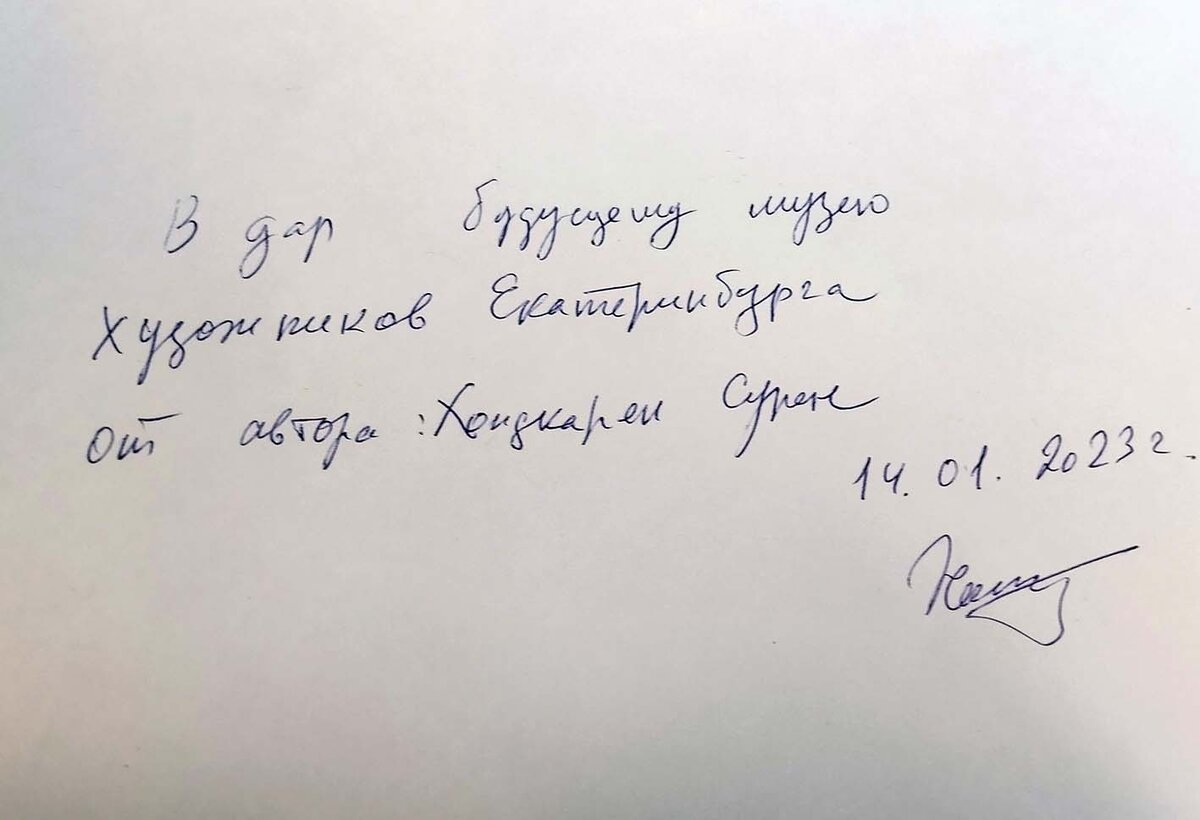 В дар будущему музею
Художников Екатеринбурга
от автора: Хондкарен Сурен
14.01.2023 г.